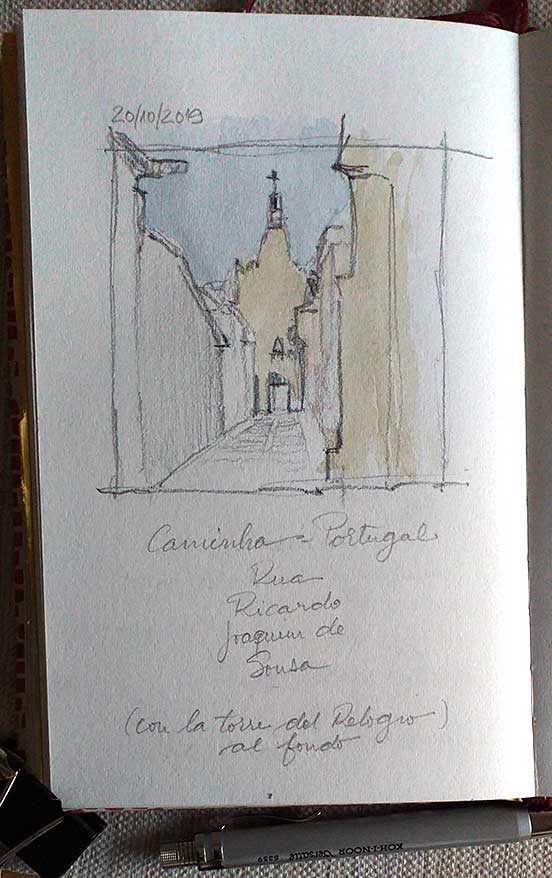 20/10/2019
Caminha - Portugal
Rua
Ricardo
Joaquim de
Sousa
(con la torre del Relogio)
al fondo
KOH-I-NOOR Versatil 5359